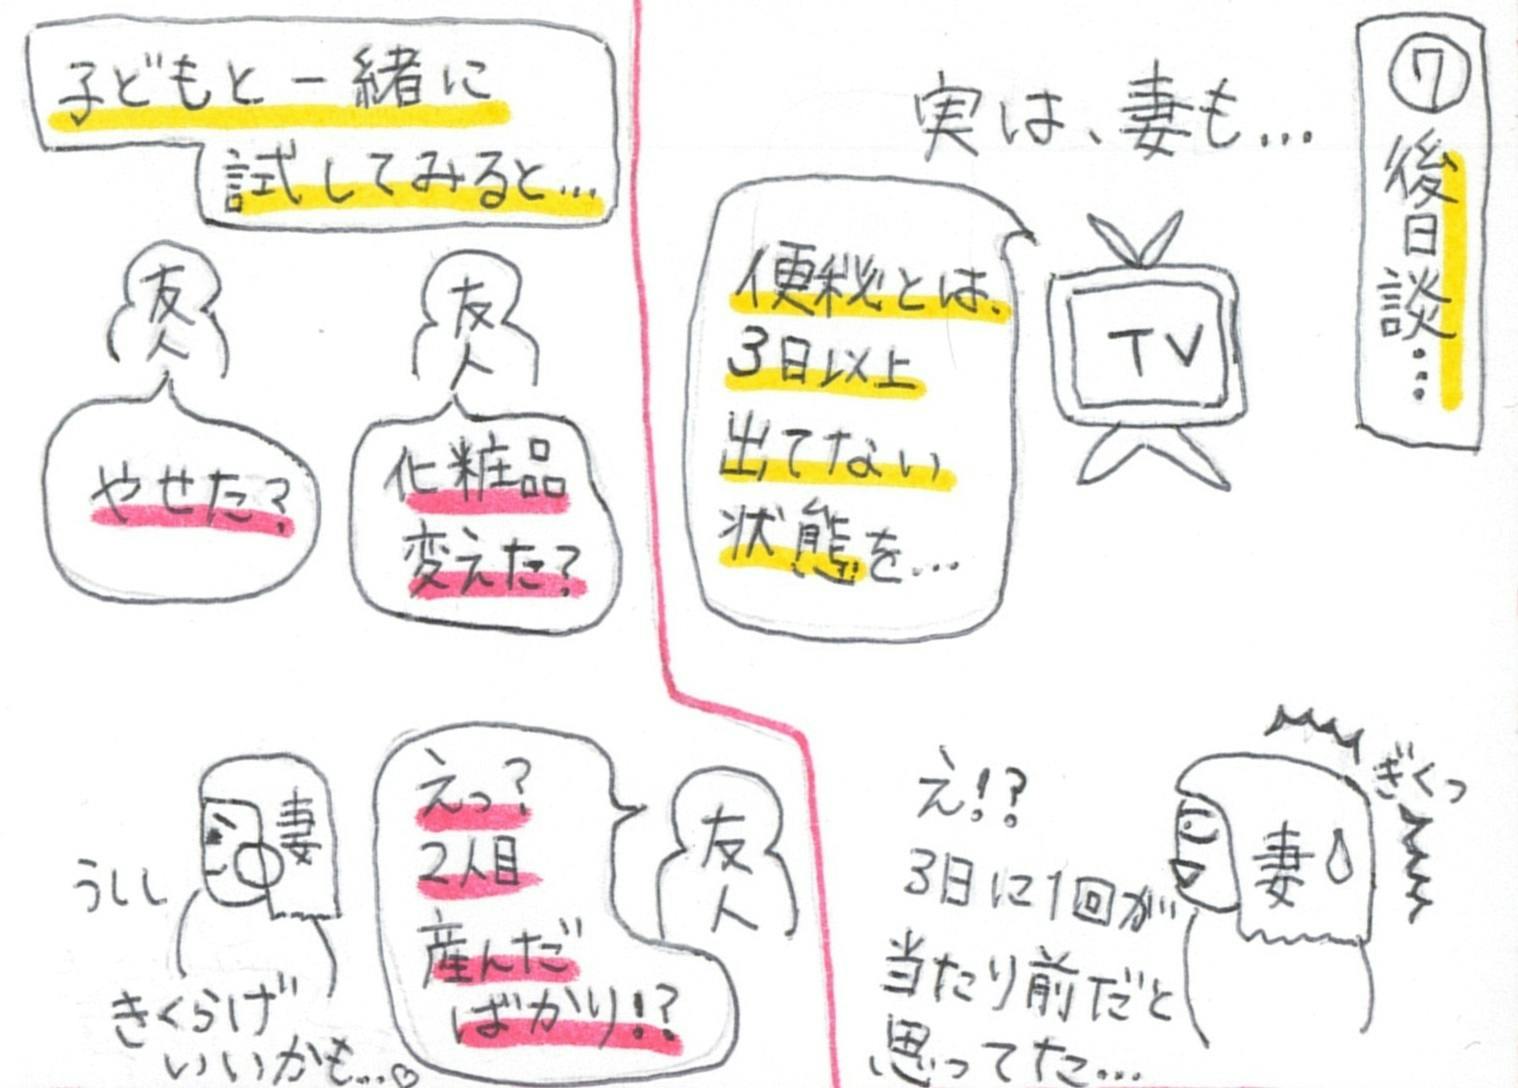 ⑦後日談…
実は、妻も…
TV
便秘とは、
3日以上
出てない
状態を…
ぎくっ
え!?
3日に1回が
当たり前だと
思ってた…
妻
子どもと一緒に
試してみると…
友人
化粧品
変えた?
友人
やせた?
友人
えっ?
2人目
産んだ
ばかり!?
妻
うしし
きくらげ
いいかも…♡